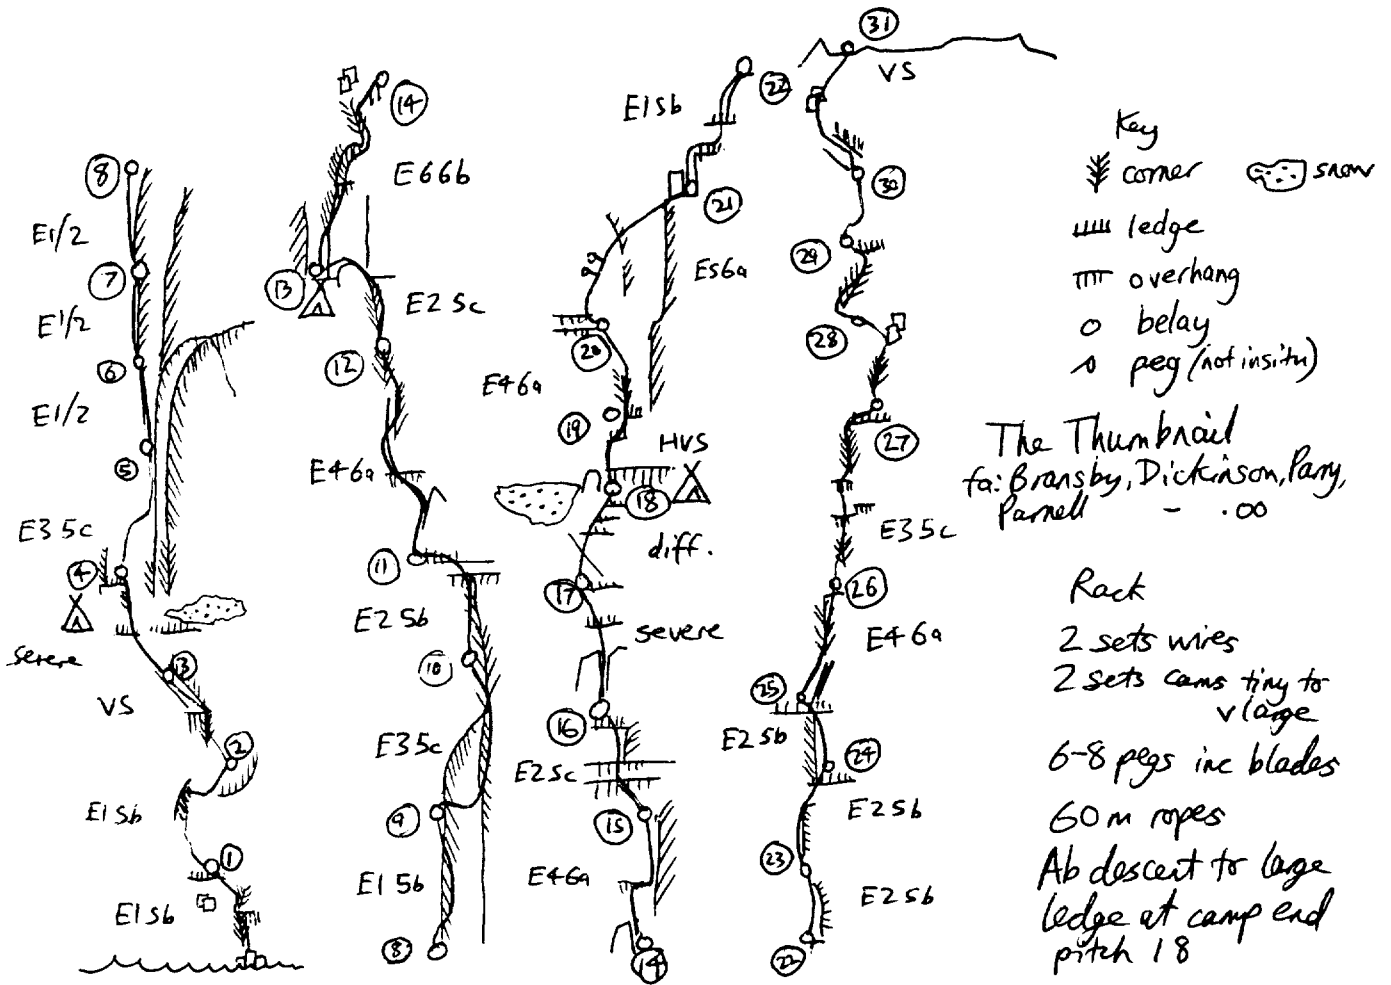 8
E1/2
7
E1/2
6
E1/2
5
E3 5c
4
severe
3
VS
2
E1 5b
1
E1 5b
14
E6 6b
13
E2 5c
12
E4 6a
11
E2 5b
10
E3 5c
9
E1 5b
8
22
E1 5b
21
E5 6a
20
E4 6a
19
HVS
18
diff.
17
severe
16
E2 5c
15
E4 6a
14
31
VS
30
29
28
27
E3 5c
26
E4 6a
25
E2 5b
24
E2 5b
23
E2 5b
22
Key
corner
snow
ledge
overhang
belay
peg (not insitu)
The Thumbnail
fa: Bransby, Dickinson, Parry,
Parnell - .00
Rack
2 sets wires
2 sets cams tiny to
v large
6-8 pegs inc blades
60m ropes
Ab descent to large
ledge at camp end
pitch 18